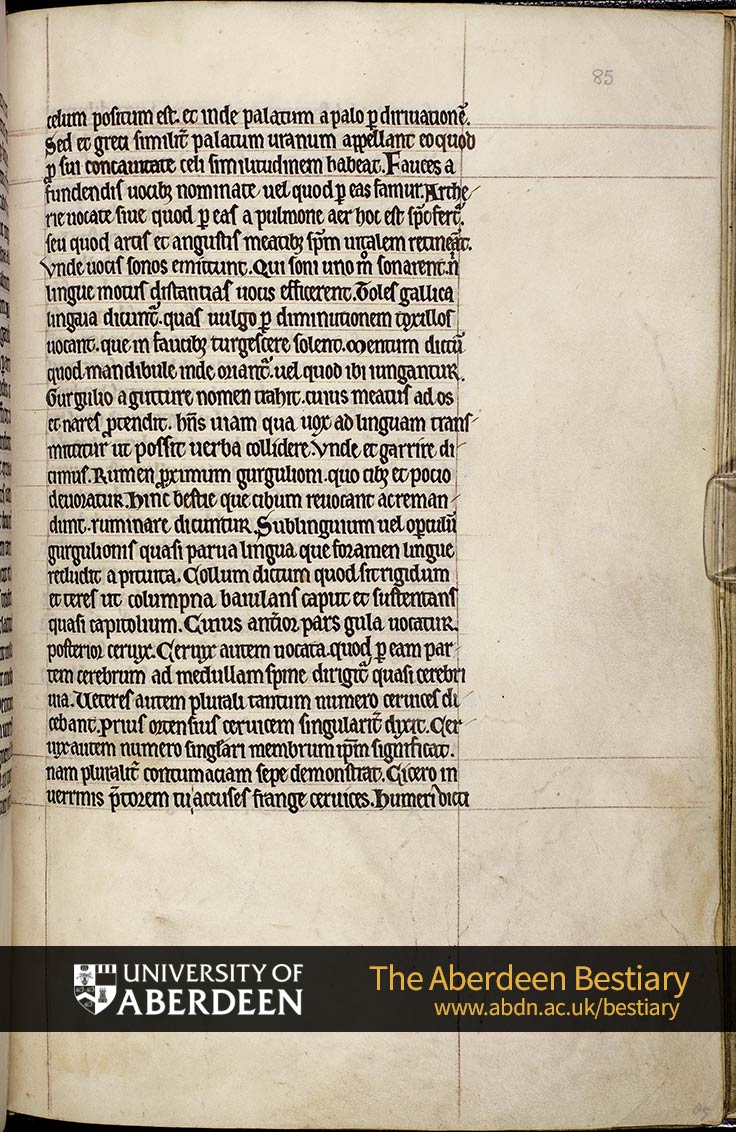 85
celum positum est. et inde palatum a palo ꝑ diriuationē.
Sed et greci similit̄ palatum uranum appellant eo quod
ꝓ sui concauitate celi similitudinem habeat. Fauces a
fundendis uocibꝫ nominate uel quod ꝑ eas famur. Arthe
rie uocate siue quod ꝑ eas a pulmone aer hoc est sp̄c fert᷑.
seu quod artis et angustis meatibꝫ sp̄m uitalem retineāt.
Vnde uocis sonos emittunt. Qui soni uno m̊ sonarent. n̄
lingue motus distantias uocis efficerent. Toles gallica
lingua dicunt᷑. quas uulgo ꝑ diminutionem toxillos
uocant. que in faucibꝫ turgescere solent. Mentum dictū
quod mandibule inde oriant᷑. uel quod ibi iungantur.
Gurgulio a gutture nomen trahit. cuius meatus ad os
et nares ꝓtendit᷑. hn̄s uiam qua uox ad linguam trans
mittitur ut possit uerba collidere. Vnde et garrire di
cimus. Rumen ꝓximum gurgulioni. quo cibꝫ et pocio
deuoratur. Hinc bestie que cibum reuocant ac reman
dunt. ruminare dicuntur. Sublinguium uel opculū
gurgulionis quasi parua lingua que foramen lingue
recludit a pituita. Collum dictum quod sit rigidum
et teres ut columpna baiulans caput et sustentans
quasi capitolium. Cuius ant̄ior pars gula uocatur.
posterior ceruyx. Ceruyx autem uocata. quod ꝑ eam par
tem cerebrum ad medullam spine dirigit᷑ quasi cerebri
uia. Ueteres autem plurali tantum numero ceruices di
cebant. Prius ortensius ceruicem singularit̄ dyxit. Cer
uyx autem numero singlari membrum ip̄m significat.
nam pluralit̄ contumaciam sepe demonstrat. Cicero in
uerrinis p̄torem tu accuses frange ceruices. Humeri dicti
UNIVERSITY OF
ABERDEEN
The Aberdeen Bestiary
www.abdn.ac.uk/bestiary